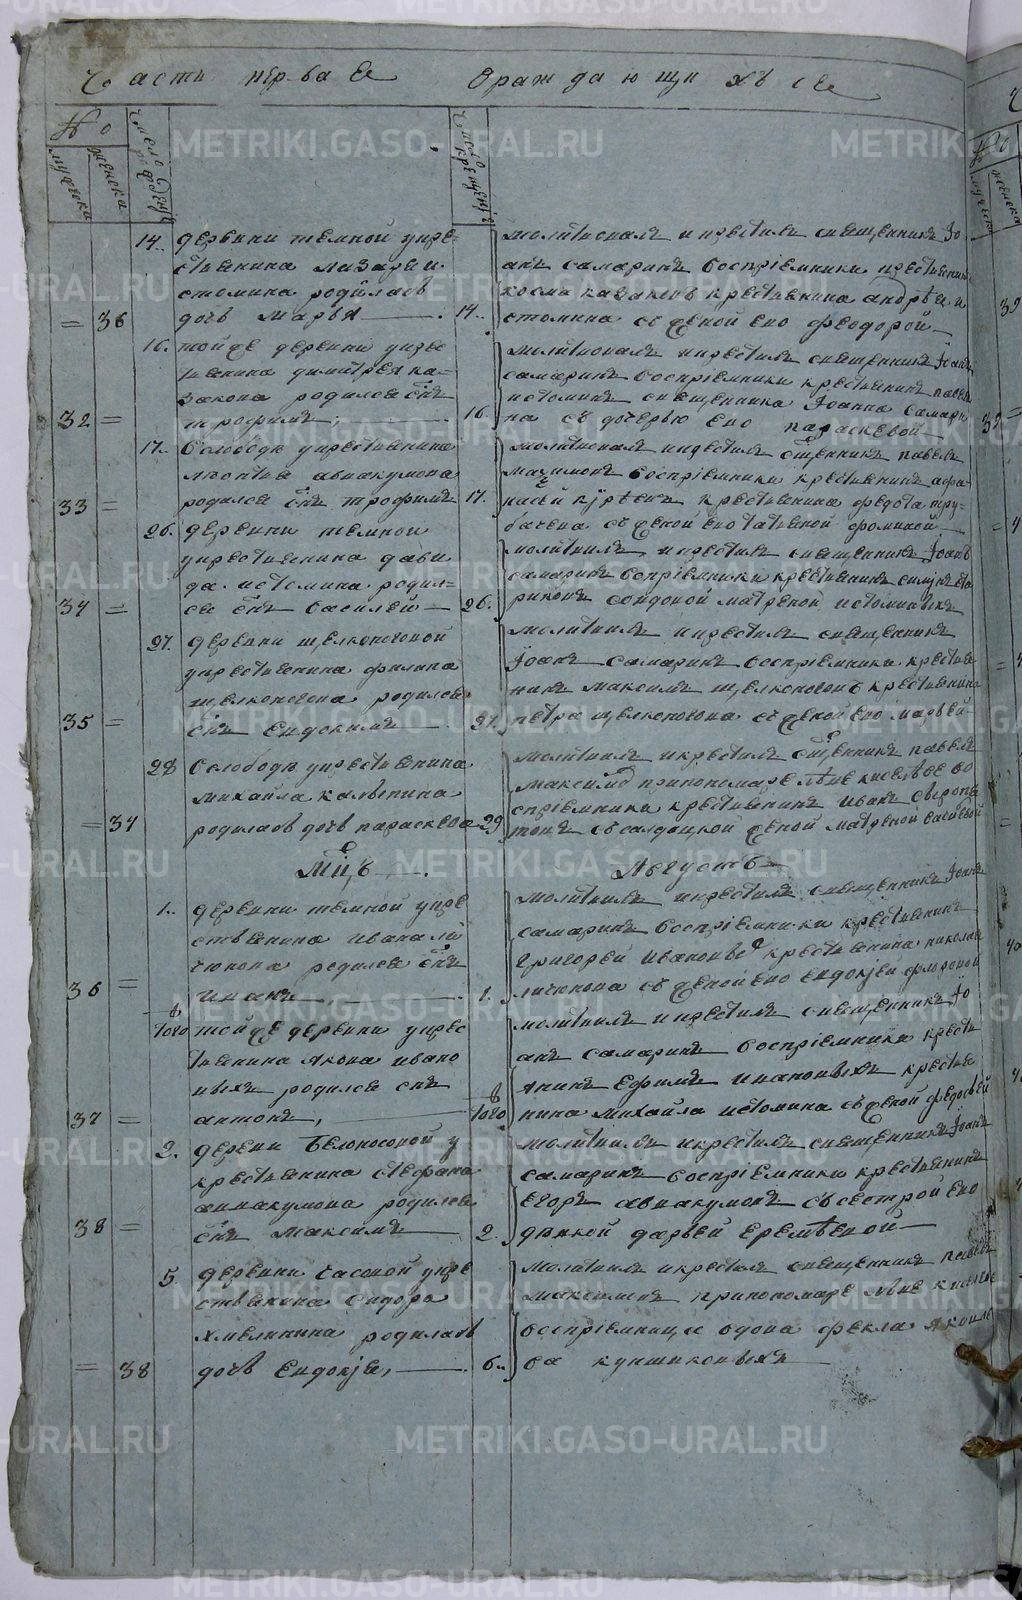 Часть первая О раждающихъся
No
мужеска
женска
Число рожде
Число крещенѣ
14. деревни темной у кре-
стьянина лазаря и
стомина родилась
= 36 дочь марья 14.
молитвовалъ и крестилъ священникъ Іо
анъ самаринъ воспріемники крестьянинъ
косма казаковъ крестьянина андрѣя и
стомина съ женой ево феодорой
16. той же деревни у кре
стьянина димитрея ка-
закова родился снъ
32 = трофимъ, 16.
молитвовалъ и крестилъ священникъ Іоанъ
самаринъ воспріемники крестьянинъ павелъ
истоминъ священника Іоанна самари
на съ дочерью ево параскевой
17. в слободѣ у крестьянина
леонтья авакумова
33 = родился снъ трофимъ 17.
молитвовалъ и крестилъ сщенникъ павелъ
максимовъ воспріемники крестьянинъ афа
насей крестьянина федота тру
бачева съ женой ево татьяной фоминой
26. деревни темной
у крестьянина дави
да истомина родил-
34 = ся снъ василей 26.
молитвилъ и крестилъ священникъ Іоанъ
самаринъ воспріемники крестьянинъ
вдовой матреной истоминыхъ
27. деревни щелконоговой
у крестьянина филипа
щелконогова родился
35 = снъ евдокимъ 27.
молитвилъ и крестилъ священникъ
Іоанъ самаринъ воспріемники крестья
нинъ максимъ щелконоговъ крестьянина
петра щелконогова съ женой ево марьей
28 в слободѣ у крестьянина
михайла калыпина
= 37 родилась дочь параскева 29
молитвилъ и крестилъ сщенникъ павелъ
максимо при пономаре львѣ киселеве во
спріемники крестьянинъ иванъ
съ салдацкой женой матреной
Мцъ Августъ
1. деревни темной у кре
стьянина ивана ли
чюкова родился снъ
36 = иванъ 1.
молитвилъ и крестилъ священникъ Іоанъ
самаринъ воспріемники крестьянинъ
григорей ивановъ крестьянина николая
личюкова съ женой ево евдокіей флоровой
того той же деревни у крес
тьянина якова ивано
выхъ родился снъ
37 = антонъ, того
молитвилъ и крестилъ священникъ Іо
анъ самаринъ воспріемники кресть
янинъ ефимъ ивановыхъ крестья
нина михайла истомина съ женой федосьей
2. деревни белоносовой у
крестьянина стефана
аввакумова родился
38 = снъ максимъ 2.
молитвилъ и крестилъ священникъ Іоанъ
самаринъ воспріемники крестьянинъ
егоръ авакумовъ съ сестрой ево
девкой дарьей еремѣевой
5. деревни часовой у кре
стьянина сидора
хмелинина родилась
= 38 дочь евдокія, 6.
молитвилъ и крестилъ священникъ павелъ
максимовъ при пономаре львѣ киселе
воспріемница вдова фекла яковле
ва кунщиковыхъ